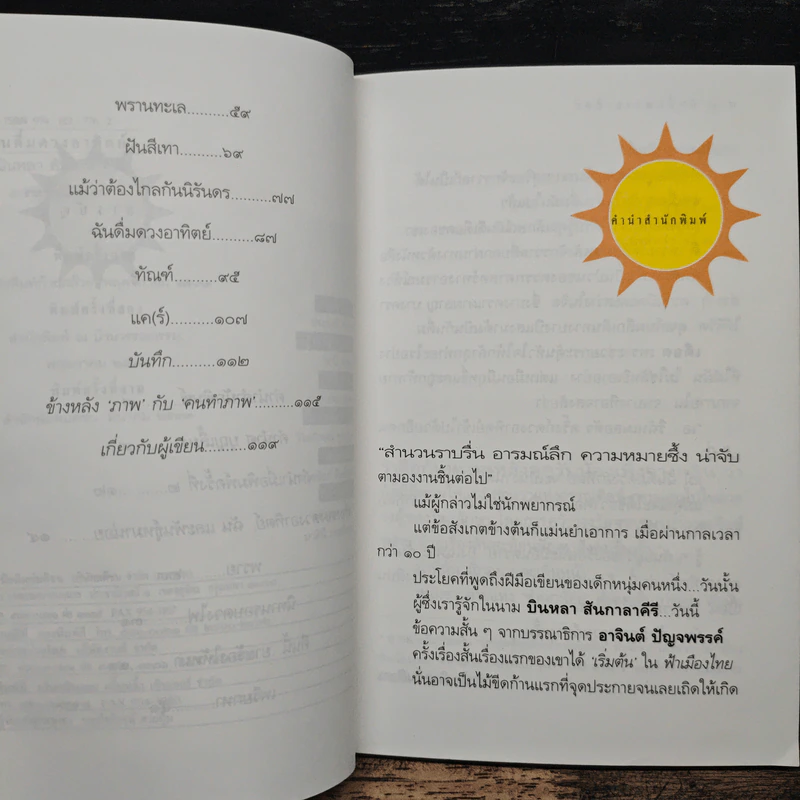 พรานทะเล..........๕๙
ฝันสีเทา..........๖๙
แม้ว่าต้องไกลกันนิรันดร..........๗๗
ฉันดื่มดวงอาทิตย์..........๘๗
ทัณฑ์..........๙๕
แค(ร์)..........๑๐๗
บันทึก..........๑๑๒
ข้างหลัง 'ภาพ' กับ 'คนทำภาพ'..........๑๑๕
เกี่ยวกับผู้เขียน..........๑๑๙
คำนำสำนักพิมพ์
"สำนวนราบรื่น อารมณ์ลึก ความหมายซึ้ง น่าจับ
ตามองงานชิ้นต่อไป"
แม้ผู้กล่าวไม่ใช่นักพยากรณ์
แต่ข้อสังเกตข้างต้นก็แม่นยำเอาการ เมื่อผ่านกาลเวลา
กว่า ๑๐ ปี
ประโยคที่พูดถึงฝีมือเขียนของเด็กหนุ่มคนหนึ่ง...วันนั้น
ผู้ซึ่งเรารู้จักในนาม บินหลา สันกาลาคีรี...วันนี้
ข้อความสั้น ๆ จากบรรณาธิการ อาจินต์ ปัญจพรรค์
ครั้งเรื่องสั้นเรื่องแรกของเขาได้ 'เริ่มต้น' ใน ฟ้าเมืองไทย
นั่นอาจเป็นไม้ขีดก้านแรกที่จุดประกายจนเลยเถิดให้เกิด